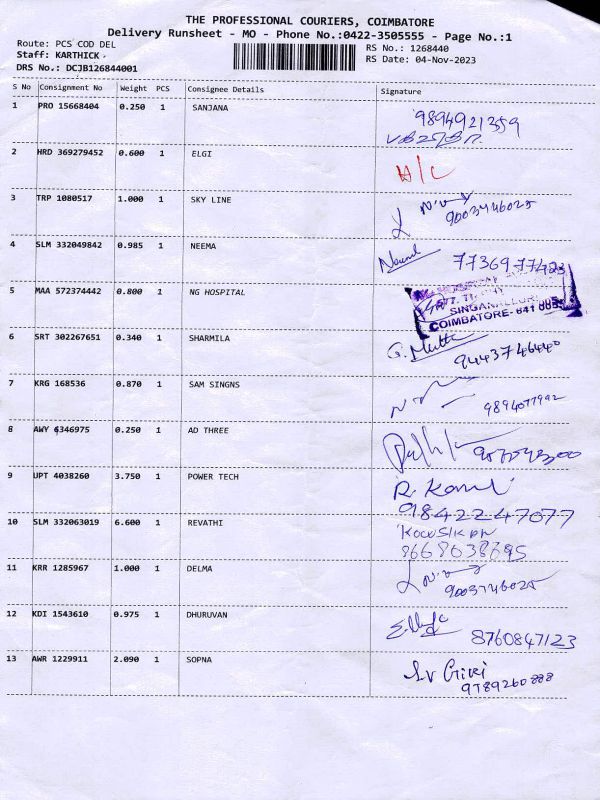 THE PROFESSIONAL COURIERS, COIMBATORE
Delivery Runsheet - MO - Phone No.:0422-3505555 - Page No.:1
Route: PCS COD DEL
RS No.: 1268440
Staff: KARTHICK
RS Date: 04-Nov-2023
DRS No.: DCJB126844001
S No Consignment No Weight PCS Consignee Details Signature
1 PRO 15668404 0.250 1 SANJANA
9894921359
2 HRD 369279452 0.600 1 ELGI
3 TRP 1080517 1.000 1 SKY LINE
9003746025
4 SLM 332049842 0.985 1 NEEMA
7736977423
5 MAA 572374442 0.800 1 NG HOSPITAL
SINGANALLUR
COIMBATORE- 641 005
6 SRT 302267651 0.340 1 SHARMILA
G. Muthu
9443746440
7 KRG 168536 0.870 1 SAM SINGNS
9894077992
8 AWY 6346975 0.250 1 AD THREE
9 UPT 4038260 3.750 1 POWER TECH
9842247077
10 SLM 332063019 6.600 1 REVATHI
8668038695
11 KRR 1285967 1.000 1 DELMA
9003746025
12 KDI 1543610 0.975 1 DHURUVAN
8760847123
13 AWR 1229911 2.090 1 SOPNA
9789260888